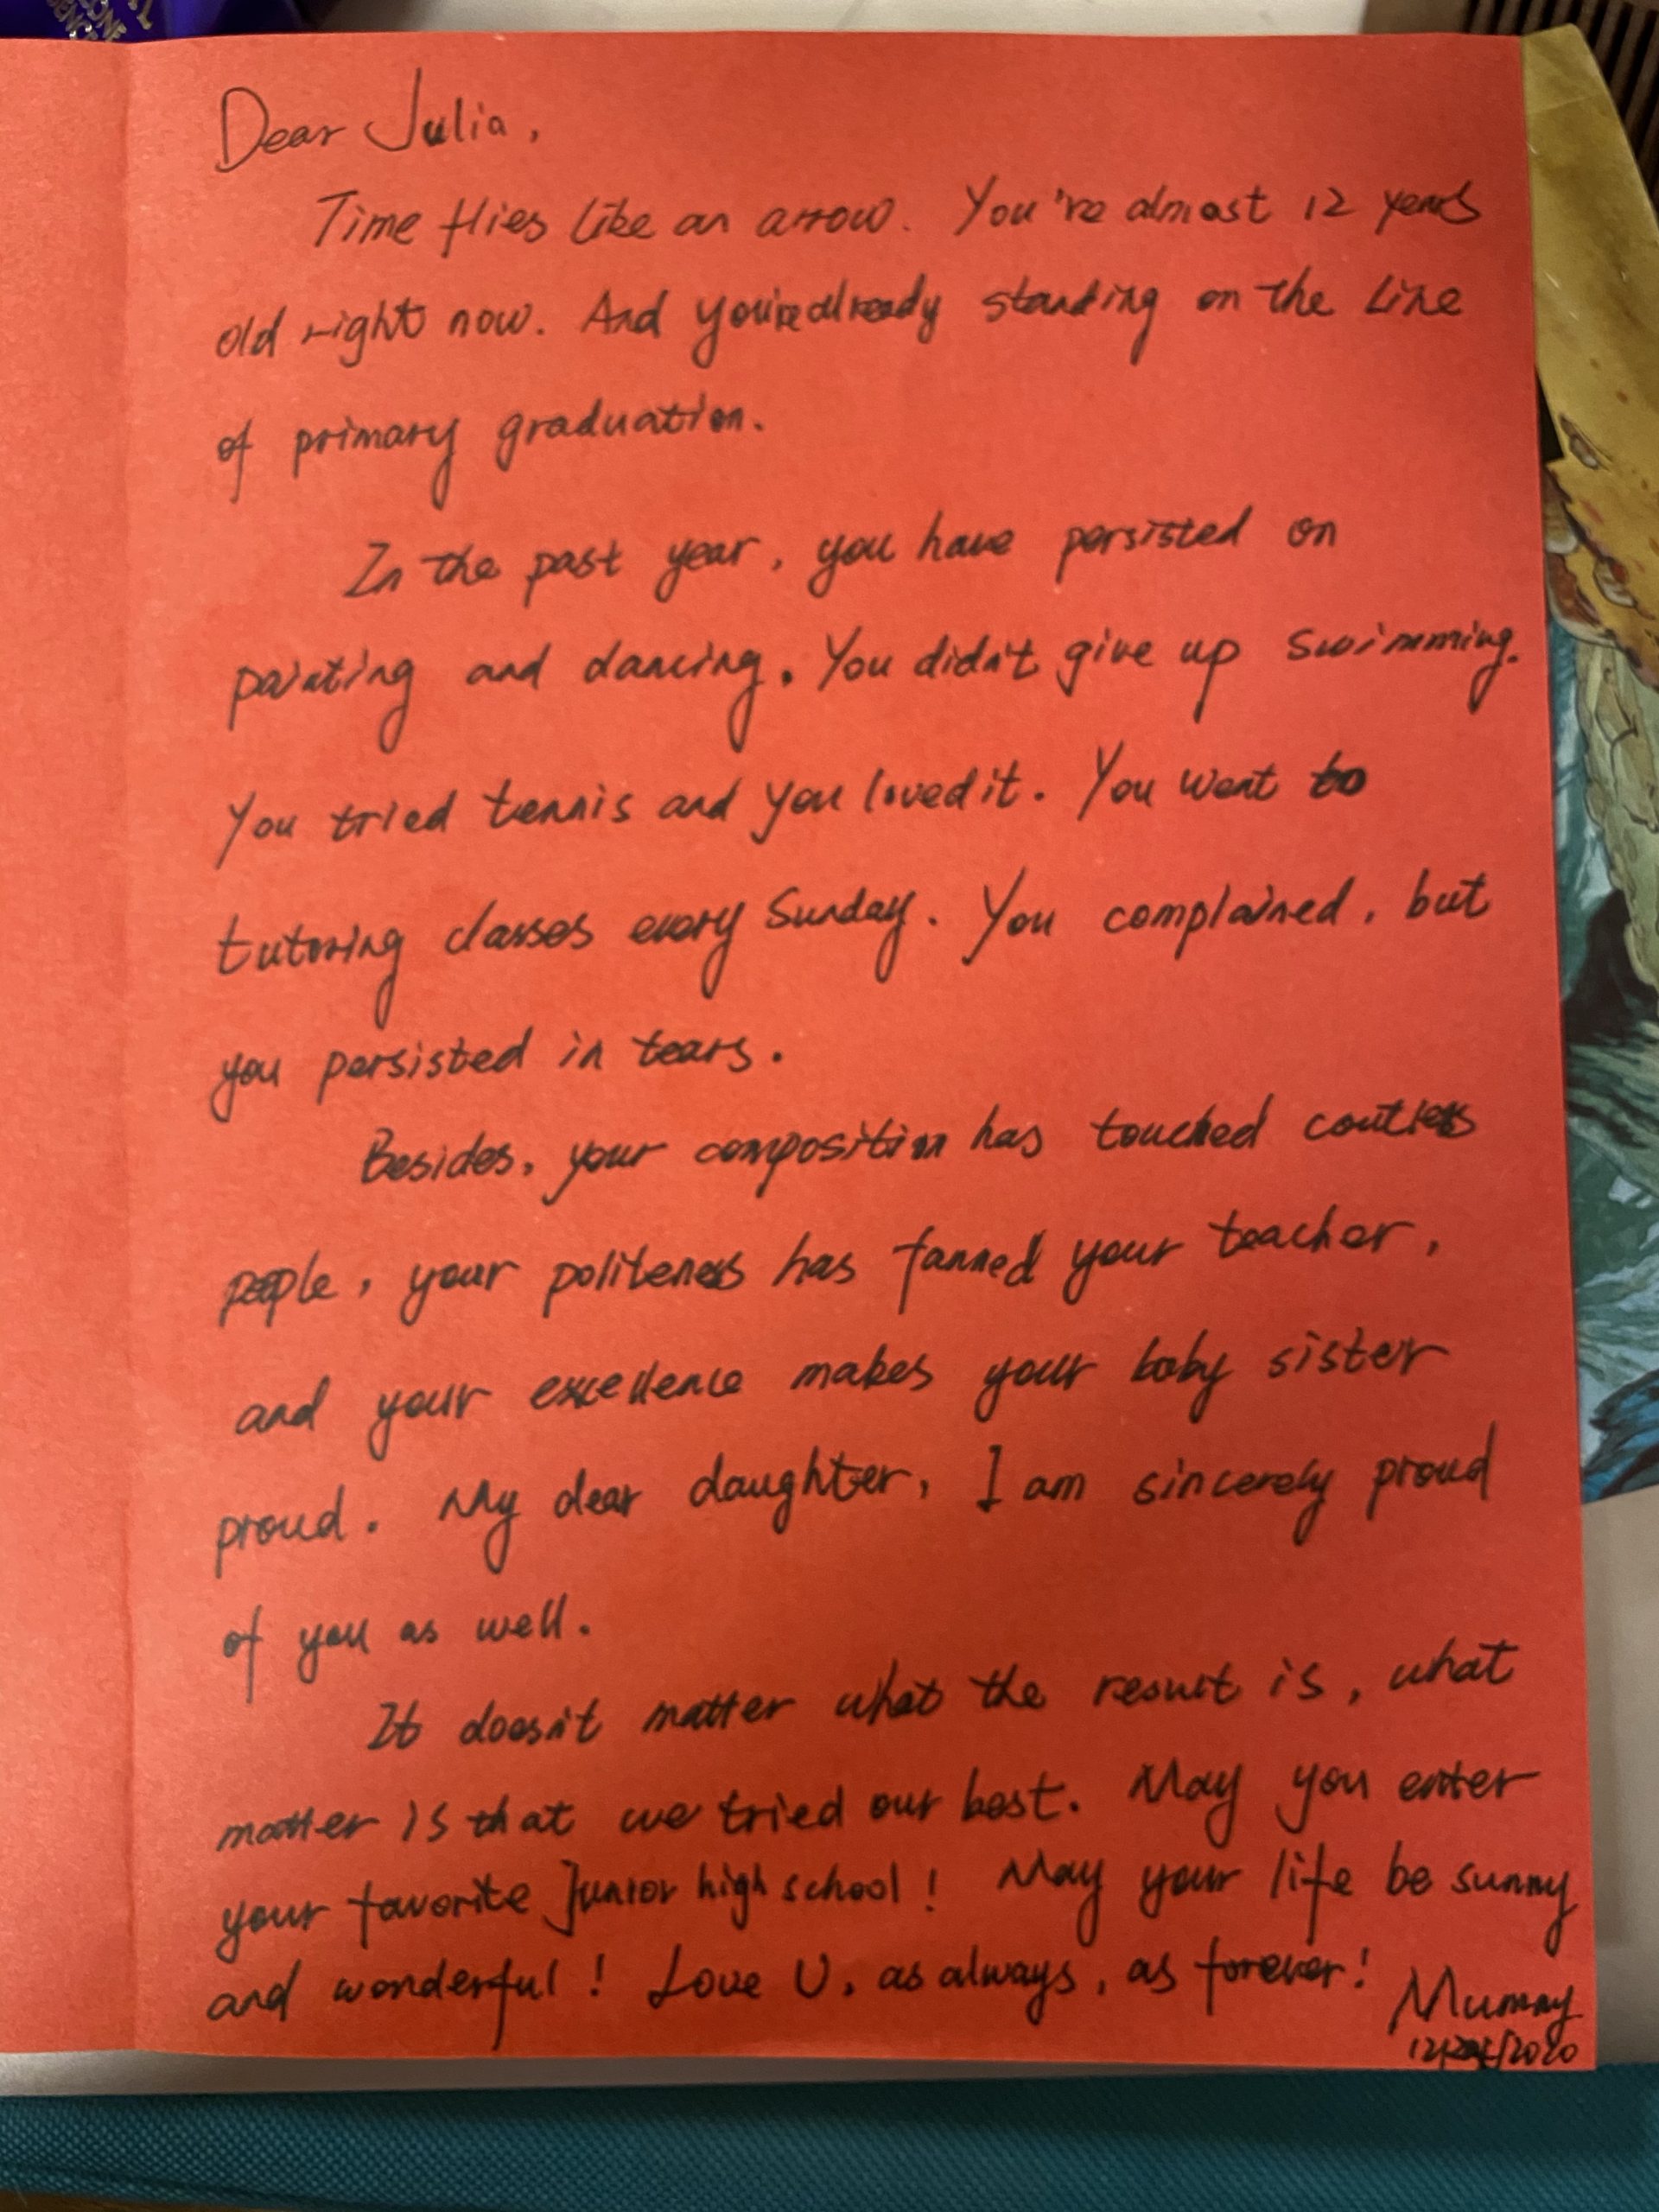 Dear Julia,
Time flies like an arrow. You're almost 12 years
old right now. And you're already standing on the line
of primary graduation.
In the past year, you have persisted on
painting and dancing. You didn't give up swimming.
You tried tennis and you loved it. You went to
tutoring classes every Sunday. You complained, but
you persisted in tears.
Besides, your composition has touched coutless
people, your politeness has fanned your teacher,
and your excellence makes your baby sister
proud. My dear daughter, I am sincerely proud
of you as well.
It doesn't matter what the result is, what
matter is that we tried our best. May you enter
your favorite Junior high school! May your life be sunny
and wonderful! Love U, as always, as forever!
Mummy